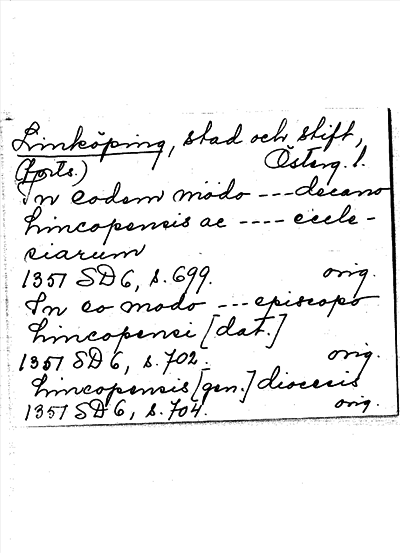 Linköping, stad och stift,
(forts.) Österg. l.
In eodem modo --- decano
Lincopensis ac ---- eccle-
siarum
1351 SD 6, s. 699. orig.
In eo modo --- episcopo
Lincopensi [dat.]
1351 SD 6, s. 702. orig.
Lincopensis [gen.] diocesis
1351 SD 6, s. 704. orig.